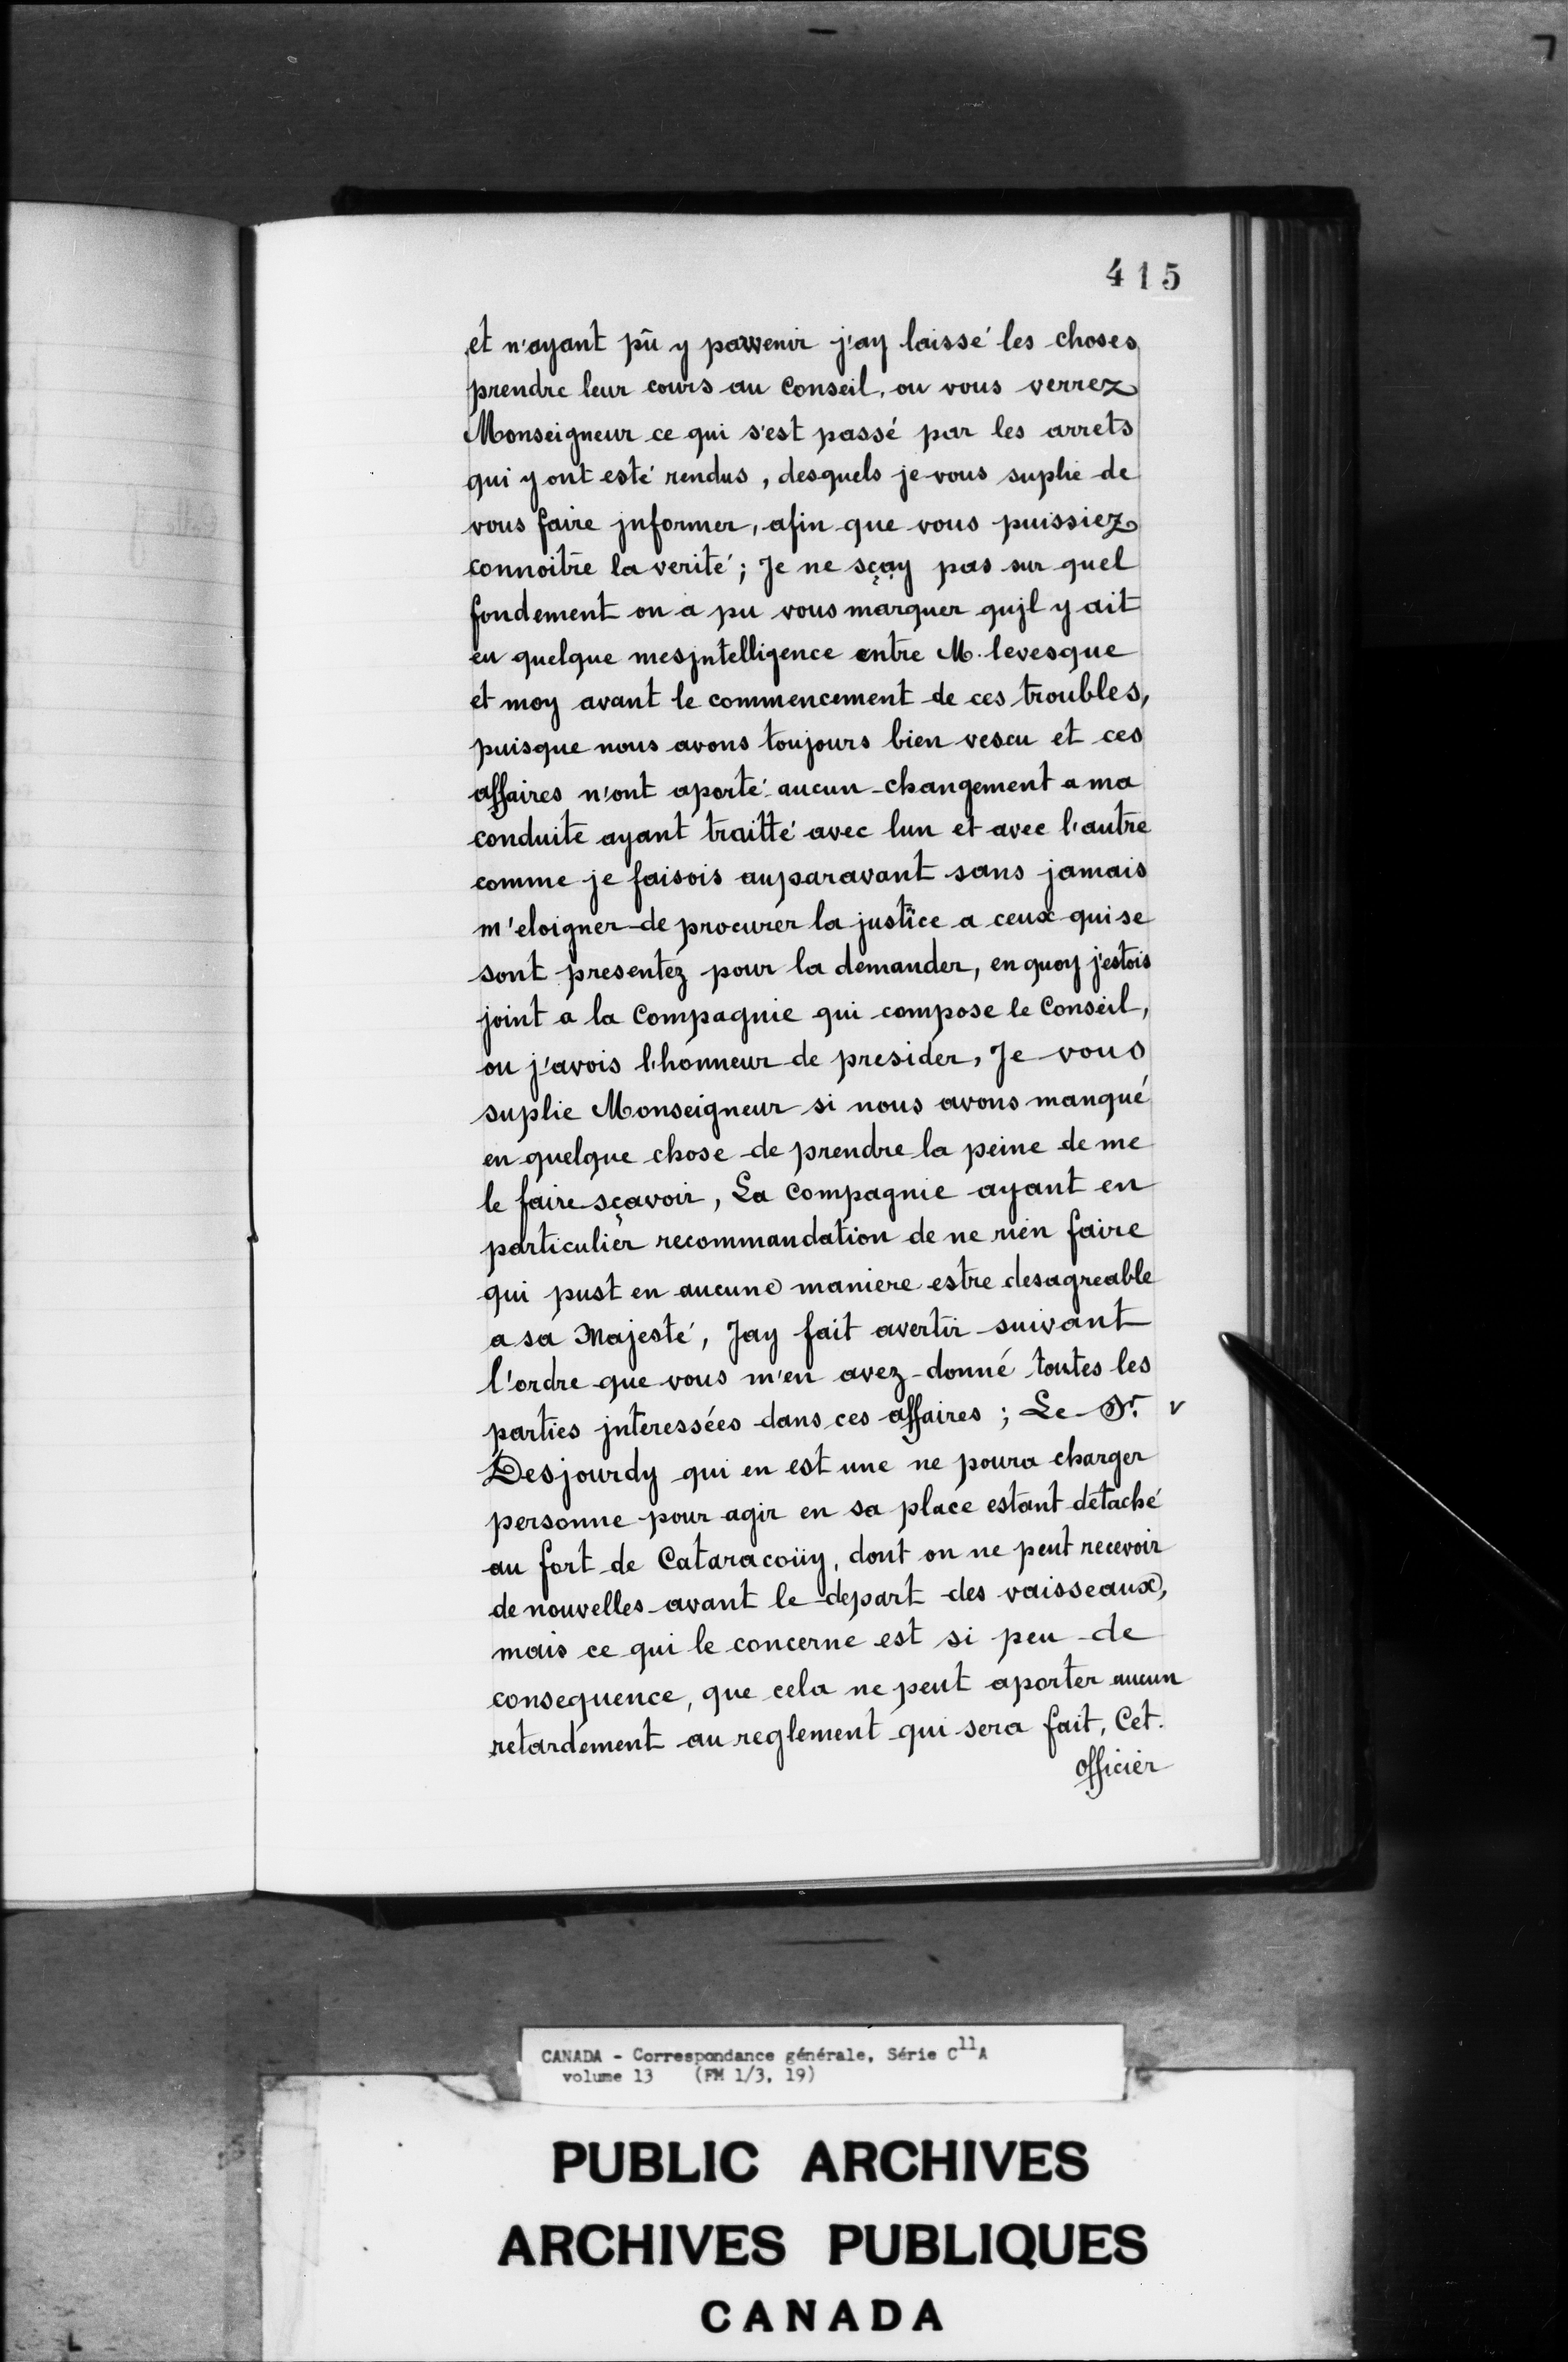 415
et n'ayant pû y parvenir j'ay laissé les choses
prendre leur cours au Conseil, ou vous verrez
Monseigneur ce qui s'est passé par les arrets
qui y ont esté rendus, desquels je vous suplie de
vous faire jnformer, afin que vous puissiez
connoitre la verité; Je ne sçay pas sur quel
fondement on a pu vous marquer qujl y ait
eu quelque mesjntelligence entre M. levesque
et moy avant le commencement de ces troubles,
puisque nous avons toujours bien vescu et ces
affaires n'ont aporté aucun changement a ma
conduite ayant traitté avec lun et avec l'autre
comme je faisois auparavant sans jamais
m'eloigner de procurer la justice a ceux qui se
sont presentéz pour la demander, en quoy j'estois
joint a la Compagnie qui compose le Conseil,
ou j'avois l'honneur de presider, Je vous
suplie Monseigneur si nous avons manqué
en quelque chose de prendre la peine de me
le faire sçavoir, La Compagnie ayant en
particulier recommandation de ne rien faire
qui pust en aucune maniere estre desagreable
a sa Majesté, Jay fait avertir suivant
l'ordre que vous m'en avez donné toutes les
parties jnteressées dans ces affaires; Le Sr. v
Desjourdy qui en est une ne poura charger
personne pour agir en sa place estant détaché
au fort de Cataracoüy, dont on ne peut recevoir
de nouvelles avant le depart des vaisseaux,
mais ce qui le concerne est si peu de
consequence, que cela ne peut aporter aucun
retardement au reglement qui sera fait, Cet.
officier
CANADA - Correspondance générale, Série C11A
volume 13 (FM 1/3, 19)
PUBLIC ARCHIVES
ARCHIVES PUBLIQUES
CANADA